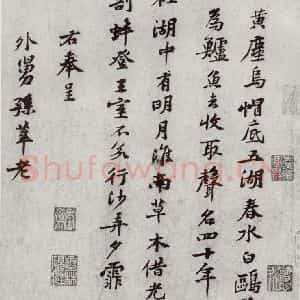 黃塵烏帽底五湖春水白鷗
為鱸魚去收取聲名四十年
社湖中有明月淮南草木借光
剖蚌登王室不若行沙弄夕霏
右奉呈
外舅孫莘老
Shufawang.cn